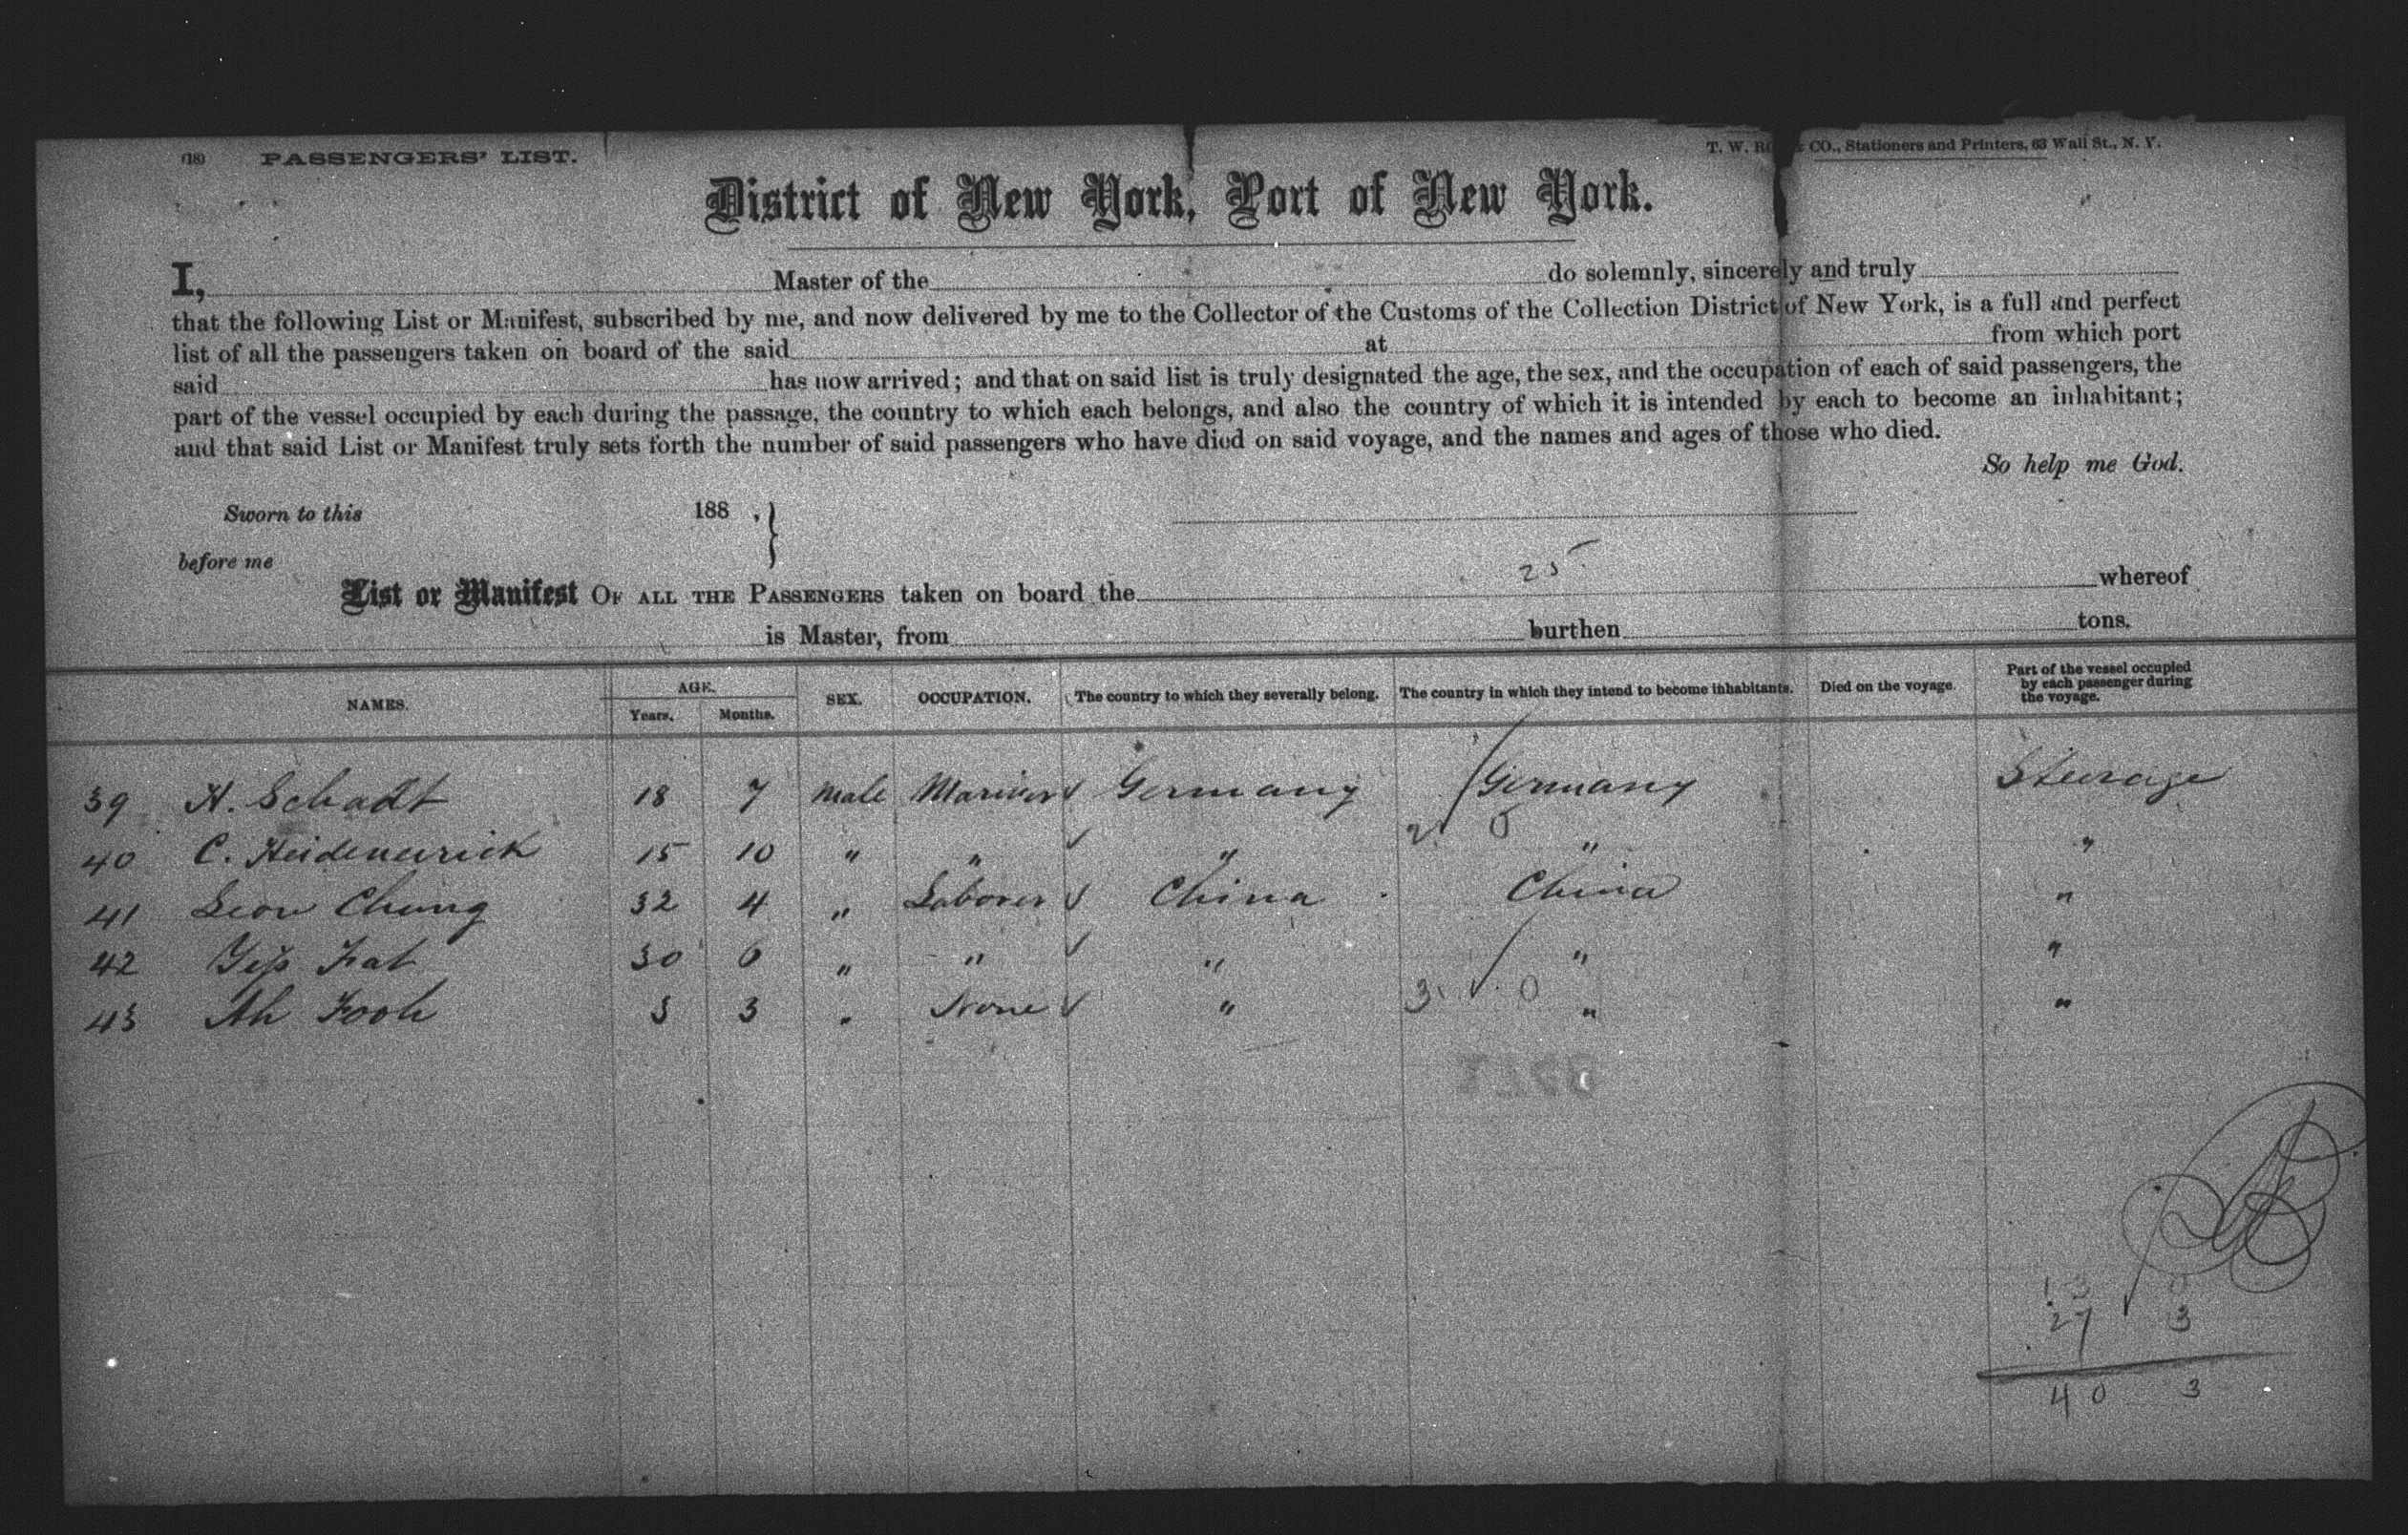 (18) PASSENGERS' LIST. T. W. & CO., Stationers and Printers, 63 Wall St., N. Y.
District of New York, Port of New York.
I, Master of the do solemnly, sincerely and truly
that the following List or Manifest, subscribed by me, and now delivered by me to the Collector of the Customs of the Collection District of New York, is a full and perfect
list of all the passengers taken on board of the said at from which port
said has now arrived; and that on said list is truly designated the age, the sex, and the occupation of each of said passengers, the
part of the vessel occupied by each during the passage, the country to which each belongs, and also the country of which it is intended by each to become an inhabitant;
and that said List or Manifest truly sets forth the number of said passengers who have died on said voyage, and the names and ages of those who died.
So help me God.
Sworn to this 188 ,
before me
25
List or Manifest OF ALL THE PASSENGERS taken on board the whereof
is Master, from burthen tons.
NAMES. AGE. Years. Months. SEX. OCCUPATION. The country to which they severally belong. The country in which they intend to become inhabitants. Died on the voyage. Part of the vessel occupied by each passenger during the voyage.
39 H. Schadt 18 7 Male Mariner Germany Germany Steerage
2 0
40 C. Heidenerick 15 10 " " " " "
41 Leon Chung 32 4 " Laborer China China "
42 Yip Fat 30 6 " " " " "
3 0
43 Ah Fooh 3 3 " None " " "
13 0
27 3
40 3